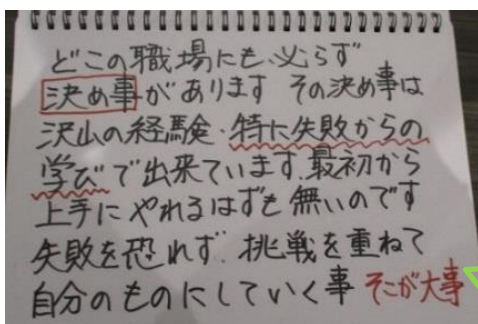 どこの職場にも、必らず
決め事があります その決め事は
沢山の経験・特に失敗からの
学びで出来ています。最初から
上手にやれるはずも無いのです
失敗を恐れず、挑戦を重ねて
自分のものにしていく事 そこが大事